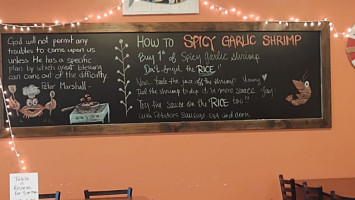 God will not permit any
troubles to come upon us
unless He has a specific
plan by which great blessing
can come out of the difficulty.
Peter Marshall -
HOW TO SPICY GARLIC SHRIMP
Buy 1# of Spicy garlic shrimp
Don't forget the RICE!
take the out of the shrimp
the shrimp to dip it in more sauce
Try the sauce on the "RICE" too!!
with Potatoes Sausage and corn